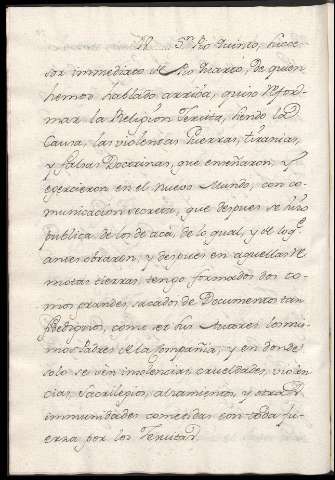 Sn. Pio Quinto, succe-
sor immediato de Pio Quarto, de quien
hemos hablado arriba, quiso Refor-
mar la Religion Jesuita, siendo la
Causa, las violentas Guerras, tiranias,
y falsas Doctrinas, que enseñaron, y
egercieron en el Nuevo Mundo, con co-
municacion secreta, que despues se hizo
publica de los de acá, de lo qual, y de lo qe.
antes obraron, y despues en aquellas re-
motas tierras, tengo formados dos to-
mos grandes, sacados de Documentos tan
fidedignos, como ser sus Autores los mis-
mos Padres de la Compañia, y en donde
solo se ven insolencias, crueldades, violen-
cias, Sacrilegios, alzamientos, y otras
inmunidades cometidas con toda fu-
erza por los Jesuitas